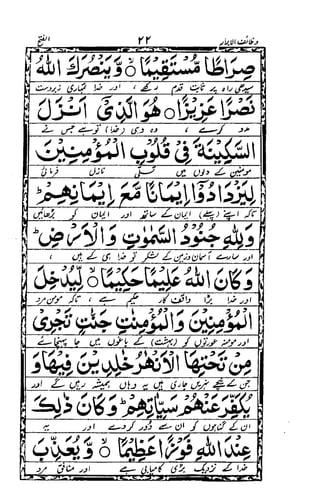 وظائف الابرار ٢٢ الفتح
صِرَاطًا مُّسْتَقِيْمًا ۙ وَّ يَنْصُرَكَ اللّٰهُ
سیدھی راہ پر ثابت قدم رکھے ، اور خدا تمہاری زبردست
نَصْرًا عَزِيْزًا ۞ هُوَ الَّذِيْۤ اَنْزَلَ
مدد کرے ، وہ وہی (خدا) تو ہے جس نے
السَّكِيْنَةَ فِيْ قُلُوْبِ الْمُؤْمِنِيْنَ
مومنین کے دلوں میں تسلی نازل فرمائی
لِيَزْدَادُوْۤا اِيْمَانًا مَّعَ اِيْمَانِهِمْ ؕ
تاکہ اپنے (پہلے) ایمان کے ساتھ اور ایمان کو بڑھائیں
وَلِلّٰهِ جُنُوْدُ السَّمٰوٰتِ وَالْاَرْضِ ؕ
اور سارے آسمان و زمین کے لشکر تو خدا ہی کے ہیں
وَكَانَ اللّٰهُ عَلِيْمًا حَكِيْمًا ۙ لِّيُدْخِلَ
اور خدا بڑا واقف کار حکیم ہے ، تاکہ مومن مرد
الْمُؤْمِنِيْنَ وَالْمُؤْمِنٰتِ جَنّٰتٍ تَجْرِيْ
اور مومنہ عورتوں کو (بہشت) کے باغوں میں جا پہنچائے
مِنْ تَحْتِهَا الْاَنْهٰرُ خٰلِدِيْنَ فِيْهَا وَ
جن کے نیچے نہریں جاری ہیں یہ وہاں ہمیشہ رہیں گے اور
يُكَفِّرَ عَنْهُمْ سَيِّاٰتِهِمْ ؕ وَكَانَ ذٰلِكَ
ان کے گناہوں کو ان سے دور کر دے اور یہ
عِنْدَ اللّٰهِ فَوْزًا عَظِيْمًا ۙ وَّ يُعَذِّبَ
خدا کے نزدیک بڑی کامیابی ہے اور منافق مرد